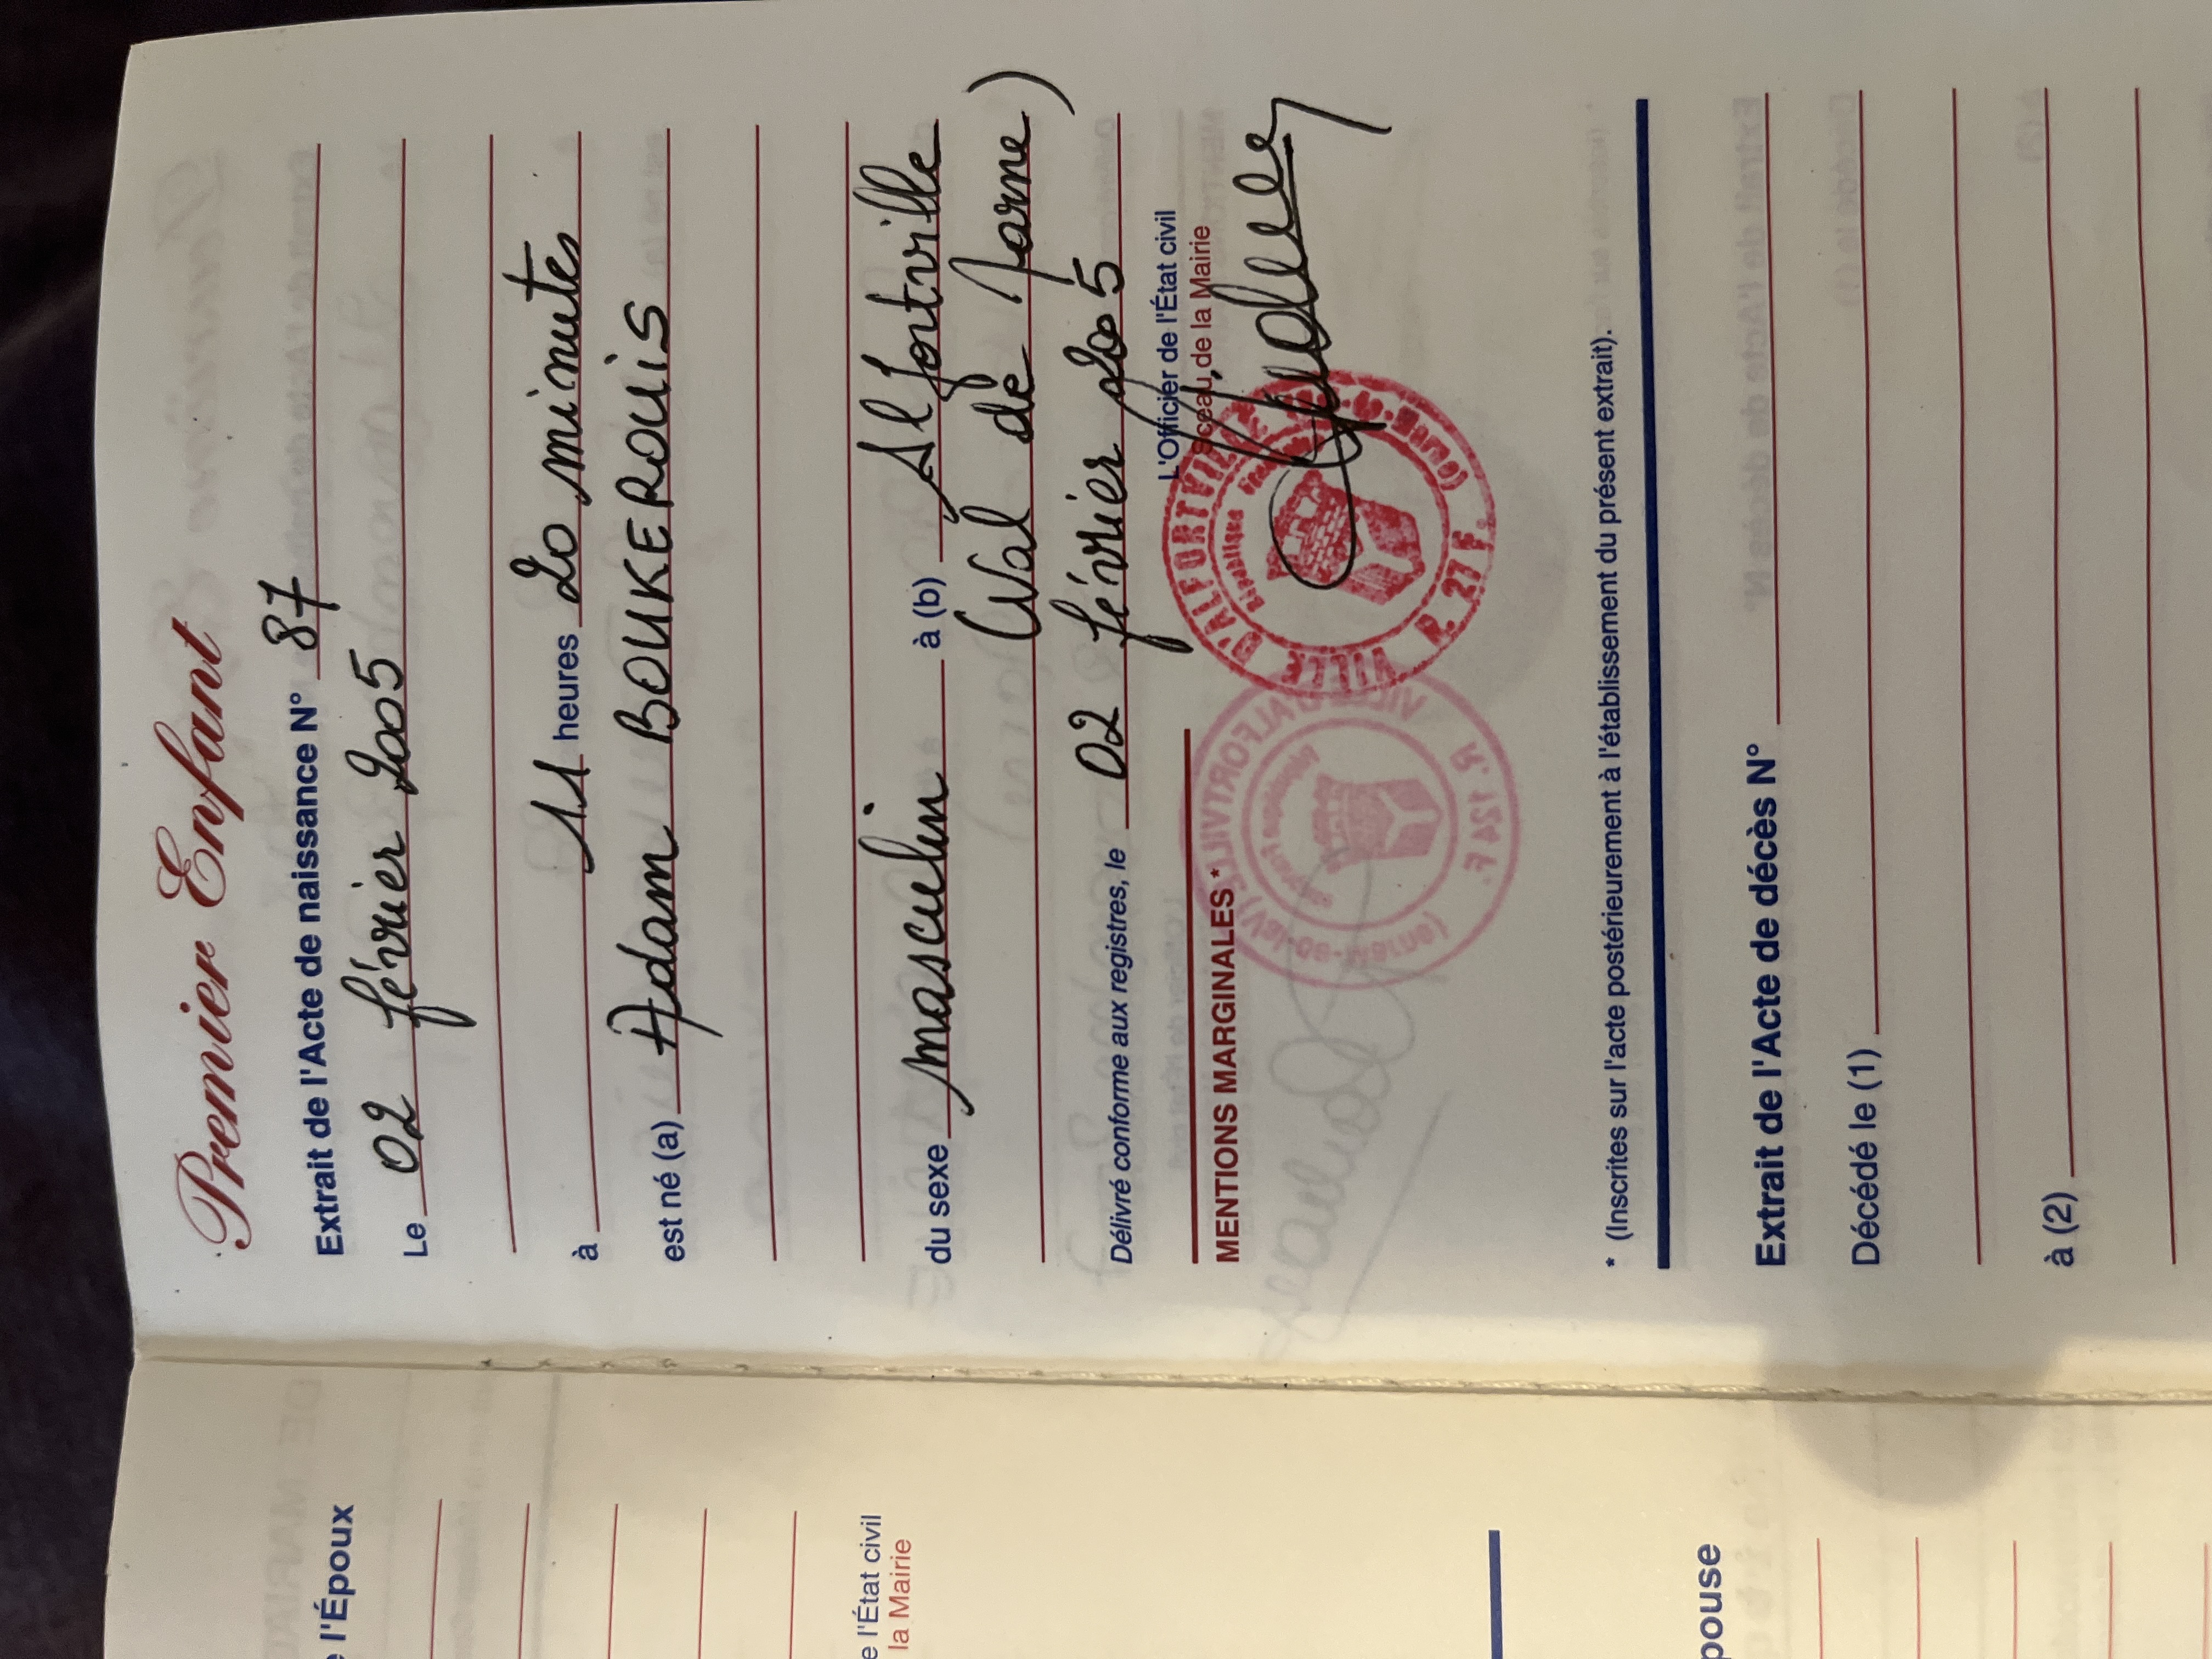 Premier Enfant
Extrait de l'Acte de naissance N° 87
Le 02 février 2005
à 11 heures 20 minutes
est né (a) Adam BOUKEROUIS
du sexe masculin à (b) Alfortville
(Val de Marne)
Délivré conforme aux registres, le 02 février 2005
L'Officier de l'État civil
Sceau de la Mairie
MENTIONS MARGINALES *
VILLE D'ALFORTVILLE
R. 27 F.
* (Inscrites sur l'acte postérieurement à l'établissement du présent extrait).
Extrait de l'Acte de décès N°
Décédé le (1)
à (2)
l'Époux
l'État civil
la Mairie
pouse